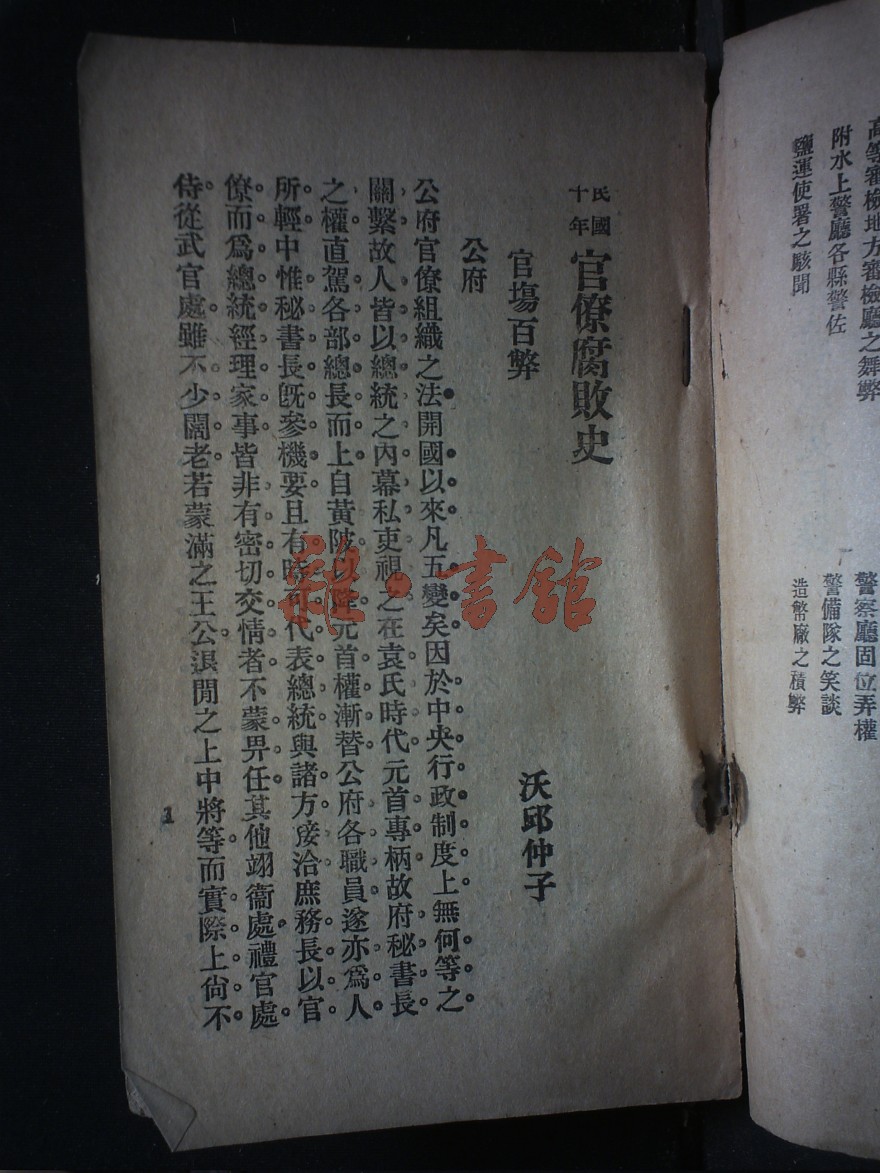 高等審檢地方審檢廳之舞弊
警察廳固位弄權
附水上警廳各縣警佐
警備隊之笑談
鹽運使署之駭聞
造幣廠之積弊
民國十年 官僚腐敗史
沃邱仲子
官塲百弊
公府
公府官僚組織之法開國以來凡五變矣因於中央行政制度上無何等之
關繫故人皆以總統之內幕私吏視之在袁氏時代元首專柄故府秘書長
之權直駕各部總長而上自黃陂以降元首權漸替公府各職員遂亦爲人
所輕中惟秘書長旣參機要且有時可代表總統與諸方接洽庶務長以官
僚而爲總統經理家事皆非有密切交情者不蒙畀任其他翊衞處禮官處
侍從武官處雖不少闊老若蒙滿之王公退閒之上中將等而實際上尙不
1
雜·書館